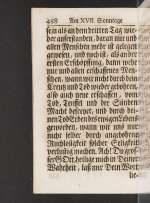 458 Am XVII. Sonntage
sem als an dem dritten Tag wie-
der auferstanden. daran mir und
allen Menschen mehr ist gelegen
gewesen, und noch ist, als an der
ersten Erschöpffung, dann mehr
nur und allen erschaffenen Men-
schen, wann wir nicht durch dein
Creutz und Tod wieder gebohren,
also auch neu erschaffen, vom
Tod, Teuffel und der Sünden
Macht befreyet, und durch dei-
nen Tod Erben des ewigen Lebens
geworden, wann wir und mir
nicht selber durch angebohrne
Ruchlosigkeit solcher Seligkeit
verlustig machen. Ach! Du gros-
ser GOtt, heilige mich in Deiner
Wahrheit, laß mir Dein Wort
lie-